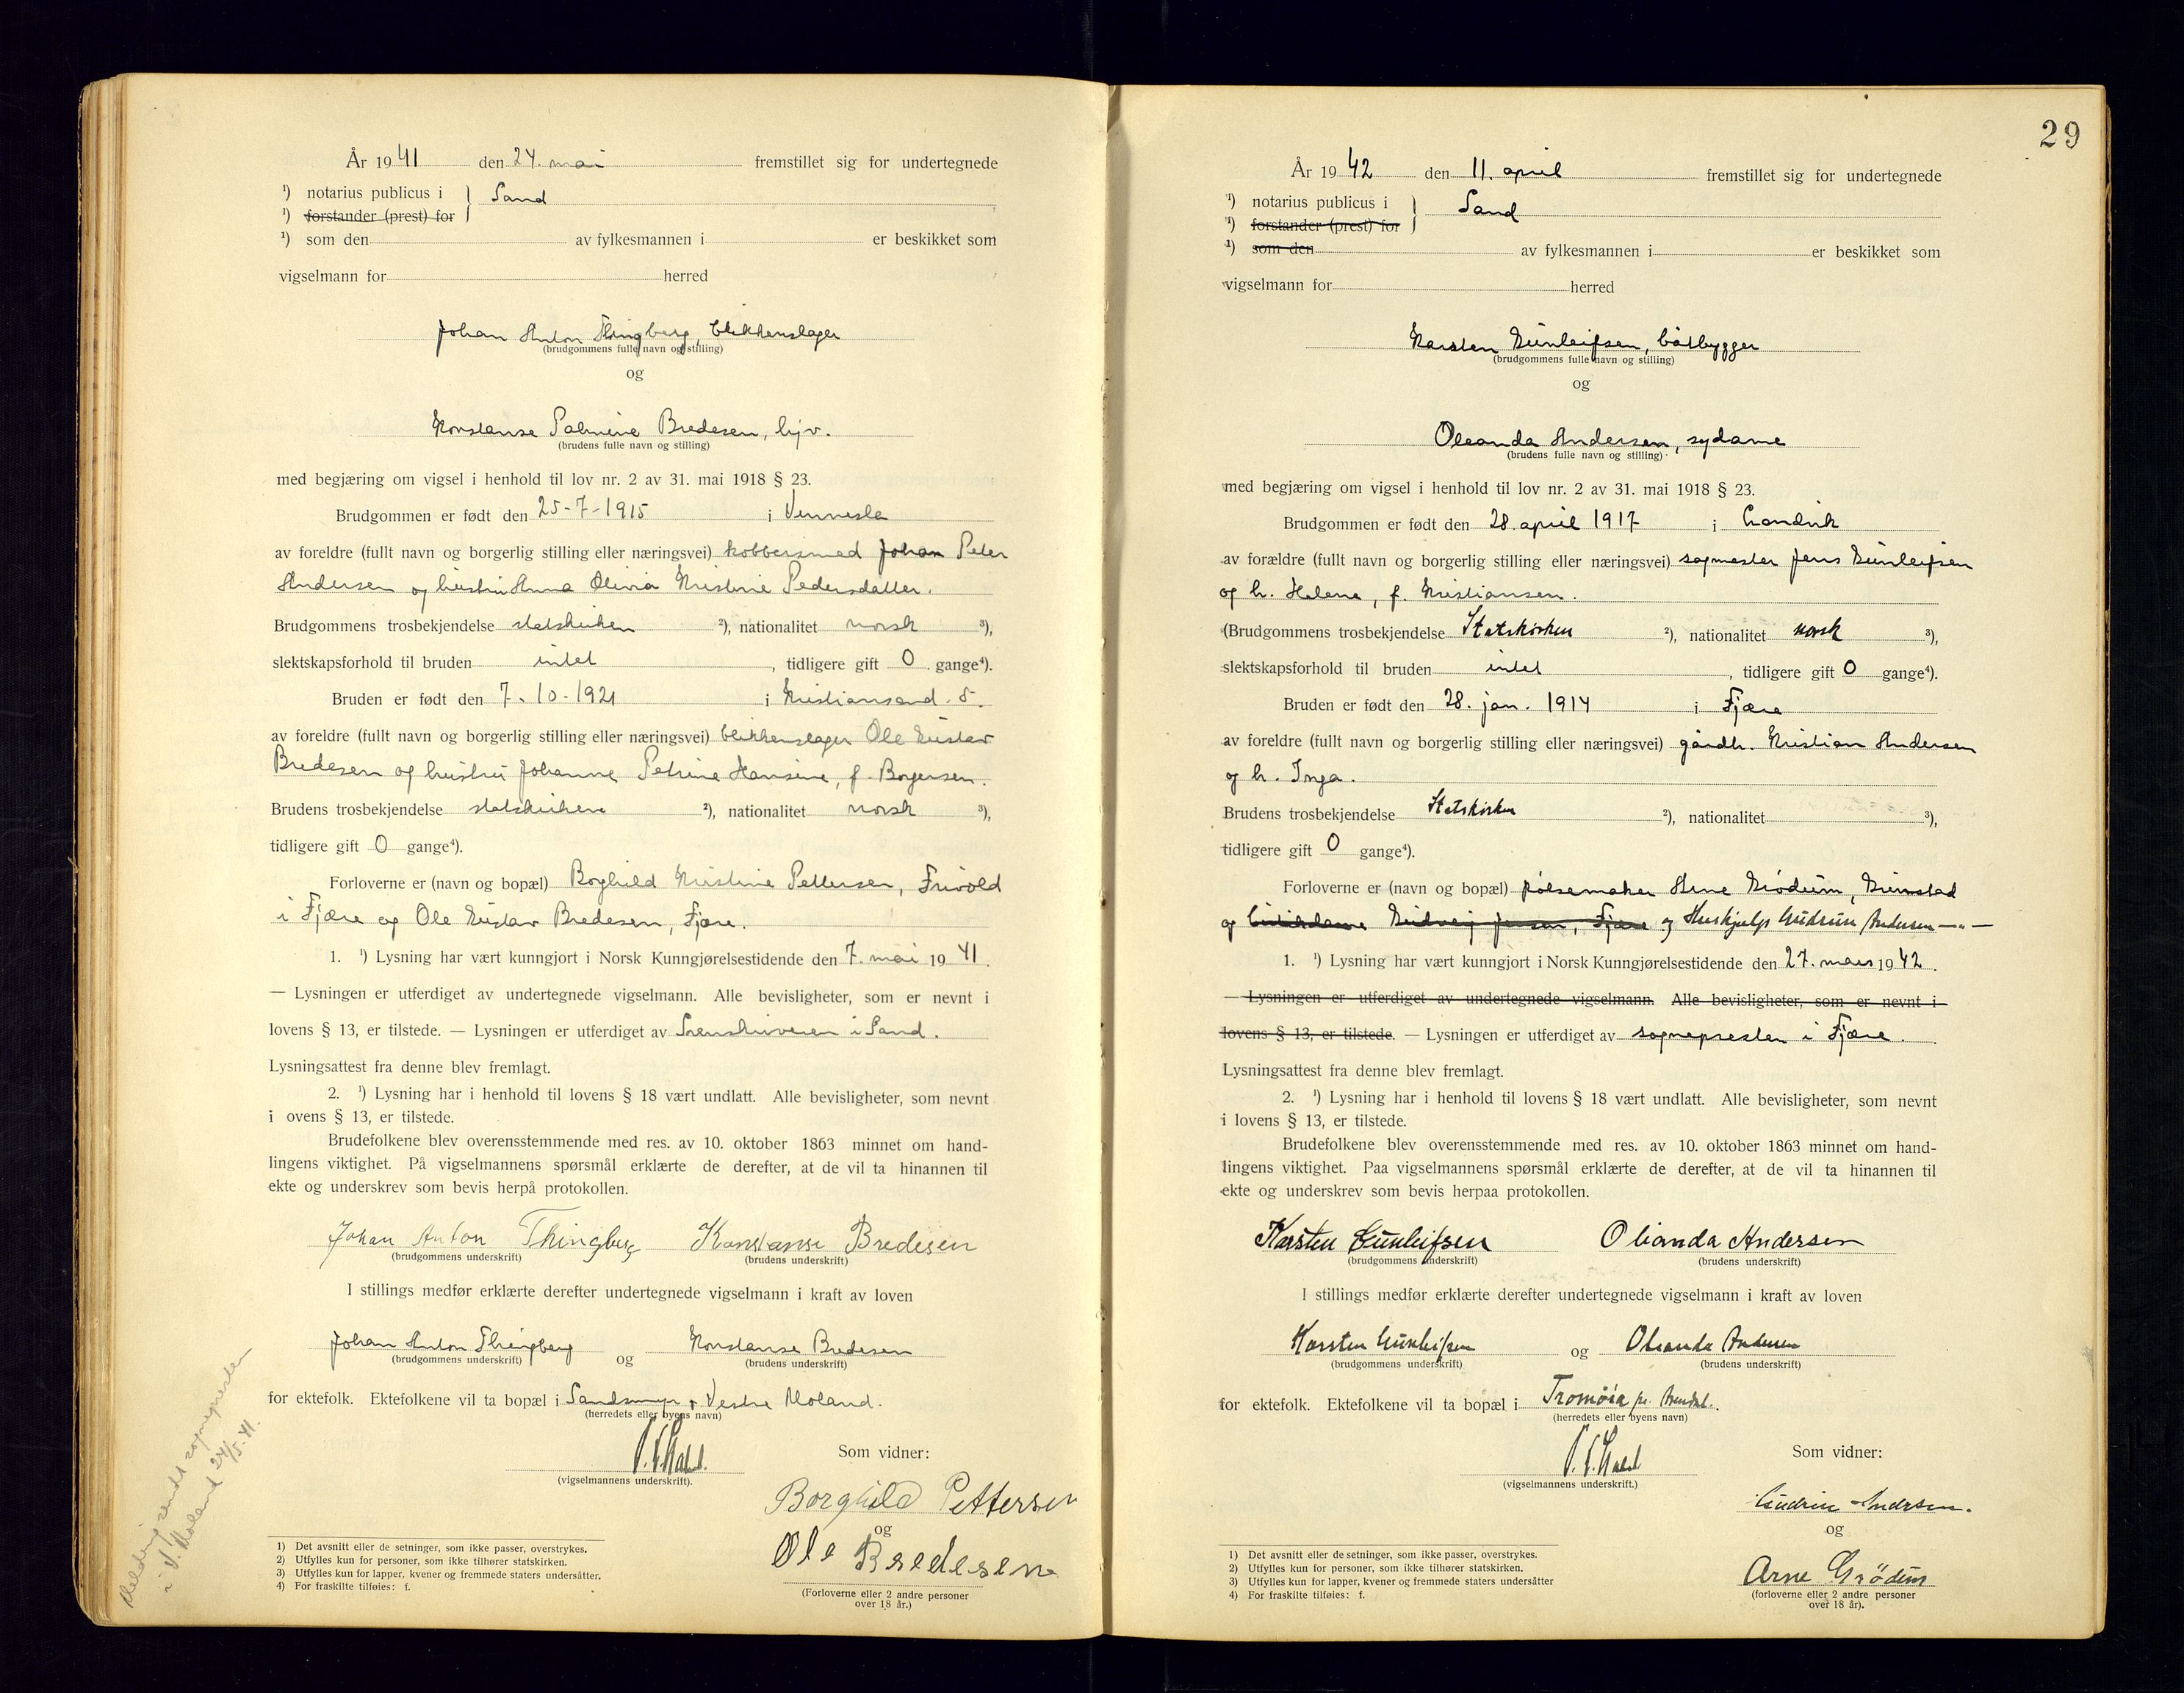 År 1941 den 24. mai fremstillet sig for undertegnede
¹) notarius publicus i } Sand
¹) forstander (prest) for
¹) som den av fylkesmannen i er beskikket som
vigselmann for herred
Johan Anton Thingberg, blikkenslager
(brudgommens fulle navn og stilling)
og
Konstanse Palmine Bredesen, hjv.
(brudens fulle navn og stilling)
med begjæring om vigsel i henhold til lov nr. 2 av 31. mai 1918 § 23.
Brudgommen er født den 25-7-1915 i Vennesla
av foreldre (fullt navn og borgerlig stilling eller næringsvei) kobbersmed Johan Peter
Andersen og hustru Anna Olivia Kristine Pedersdatter.
Brudgommens trosbekjendelse statskirken ²), nationalitet norsk ³),
slektskapsforhold til bruden intet, tidligere gift 0 gange⁴).
Bruden er født den 7-10-1921 i Kristiansand S.
av foreldre (fullt navn og borgerlig stilling eller næringsvei) blikkenslager Ole Gustav
Bredesen og hustru Johanne Petrine Hansine, f. Borgersen.
Brudens trosbekjendelse statskirken ²), nationalitet norsk ³),
tidligere gift 0 gange⁴).
Forloverne er (navn og bopæl) Borghild Kristine Pettersen, Frivold
i Fjære og Ole Gustav Bredesen, Fjære.
1. ¹) Lysning har vært kunngjort i Norsk Kunngjørelsestidende den 7. mai 1941.
— Lysningen er utferdiget av undertegnede vigselmann. Alle bevisligheter, som er nevnt i
lovens § 13, er tilstede. — Lysningen er utferdiget av Sorenskriveren i Sand.
Lysningsattest fra denne blev fremlagt.
2. ¹) Lysning har i henhold til lovens § 18 vært undlatt. Alle bevisligheter, som nevnt
i ovens § 13, er tilstede.
Brudefolkene blev overensstemmende med res. av 10. oktober 1863 minnet om hand-
lingens viktighet. På vigselmannens spørsmål erklærte de derefter, at de vil ta hinannen til
ekte og underskrev som bevis herpå protokollen.
Johan Anton Thingberg Konstanse Bredesen
(brudgommens underskrift) (brudens underskrift)
I stillings medfør erklærte derefter undertegnede vigselmann i kraft av loven
Johan Anton Thingberg og Konstanse Bredesen
(brudgommens underskrift) (brudens underskrift)
for ektefolk. Ektefolkene vil ta bopæl i Sandsmyr, Vestre Moland.
(herredets eller byens navn)
(vigselmannens underskrift).
Som vidner:
Borghild Pettersen
og
Ole Bredesen
(Forloverne eller 2 andre personer
over 18 år.)
1) Det avsnitt eller de setninger, som ikke passer, overstrykes.
2) Utfylles kun for personer, som ikke tilhører statskirken.
3) Utfylles kun for lapper, kvener og fremmede staters undersåtter.
4) For fraskilte tilføies: f.
Melding sendt sognepresten
i V. Moland 24/5-41.
29
År 1942 den 11. april fremstillet sig for undertegnede
¹) notarius publicus i } Sand
¹) forstander (prest) for
¹) som den av fylkesmannen i er beskikket som
vigselmann for herred
Karsten Gunleifsen, båtbygger
(brudgommens fulle navn og stilling)
og
Oleanda Andersen, sydame
(brudens fulle navn og stilling)
med begjæring om vigsel i henhold til lov nr. 2 av 31. mai 1918 § 23.
Brudgommen er født den 28. april 1917 i
av forældre (fullt navn og borgerlig stilling eller næringsvei) sagmester Jens Gunleifsen
og h. Helene, f. Kristiansen.
(Brudgommens trosbekjendelse Statskirken ²), nationalitet norsk ³),
slektskapsforhold til bruden intet, tidligere gift 0 gange⁴).
Bruden er født den 28. jan. 1914 i Fjære
av foreldre (fullt navn og borgerlig stilling eller næringsvei) gårdbr. Kristian Andersen
og h. Inga.
Brudens trosbekjendelse Statskirken ²), nationalitet ³),
tidligere gift 0 gange⁴).
Forloverne er (navn og bopæl) pølsemaker Arne Grödum, Grimstad
og Fjære og Huskjelp Gudrun Andersen —"—
1. ¹) Lysning har vært kunngjort i Norsk Kunngjørelsestidende den 27. mars 1942.
— Lysningen er utferdiget av undertegnede vigselmann. Alle bevisligheter, som er nevnt i
lovens § 13, er tilstede. — Lysningen er utferdiget av sognepresten i Fjære.
Lysningsattest fra denne blev fremlagt.
2. ¹) Lysning har i henhold til lovens § 18 vært undlatt. Alle bevisligheter, som nevnt
i lovens § 13, er tilstede.
Brudefolkene blev overensstemmende med res. av 10. oktober 1863 minnet om hand-
lingens viktighet. Paa vigselmannens spørsmål erklærte de derefter, at de vil ta hinannen til
ekte og underskrev som bevis herpaa protokollen.
Karsten Gunleifsen Olianda Andersen
(brudgommens underskrift) (brudens underskrift)
I stillings medfør erklærte derefter undertegnede vigselmann i kraft av loven
Karsten Gunleifsen og Olianda Andersen
(brudgommens underskrift) (brudens underskrift)
for ektefolk. Ektefolkene vil ta bopæl i Tromöia pr. Arendal.
(herredets eller byens navn)
(vigselmannens underskrift.)
Som vidner:
Gudrun Andersen.
og
Arne Grödum
(forloverne eller 2 andre personer
over 18 år).
1) Det avsnitt eller de setninger, som ikke passer, overstrykes.
2) Utfylles kun for personer, som ikke tilhører statskirken.
3) Utfylles kun for lapper, kvener og fremmede staters undersåtter
4) For fraskilte tilføies: f.